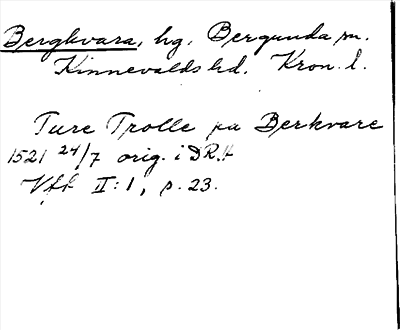 Bergkvara, hg, Bergunda sn.
Kinnevalds hd. Kron. l.
Ture Trolle pa Berkvare
1521 24/7 orig. i DRA
Vff II:1, s. 23.